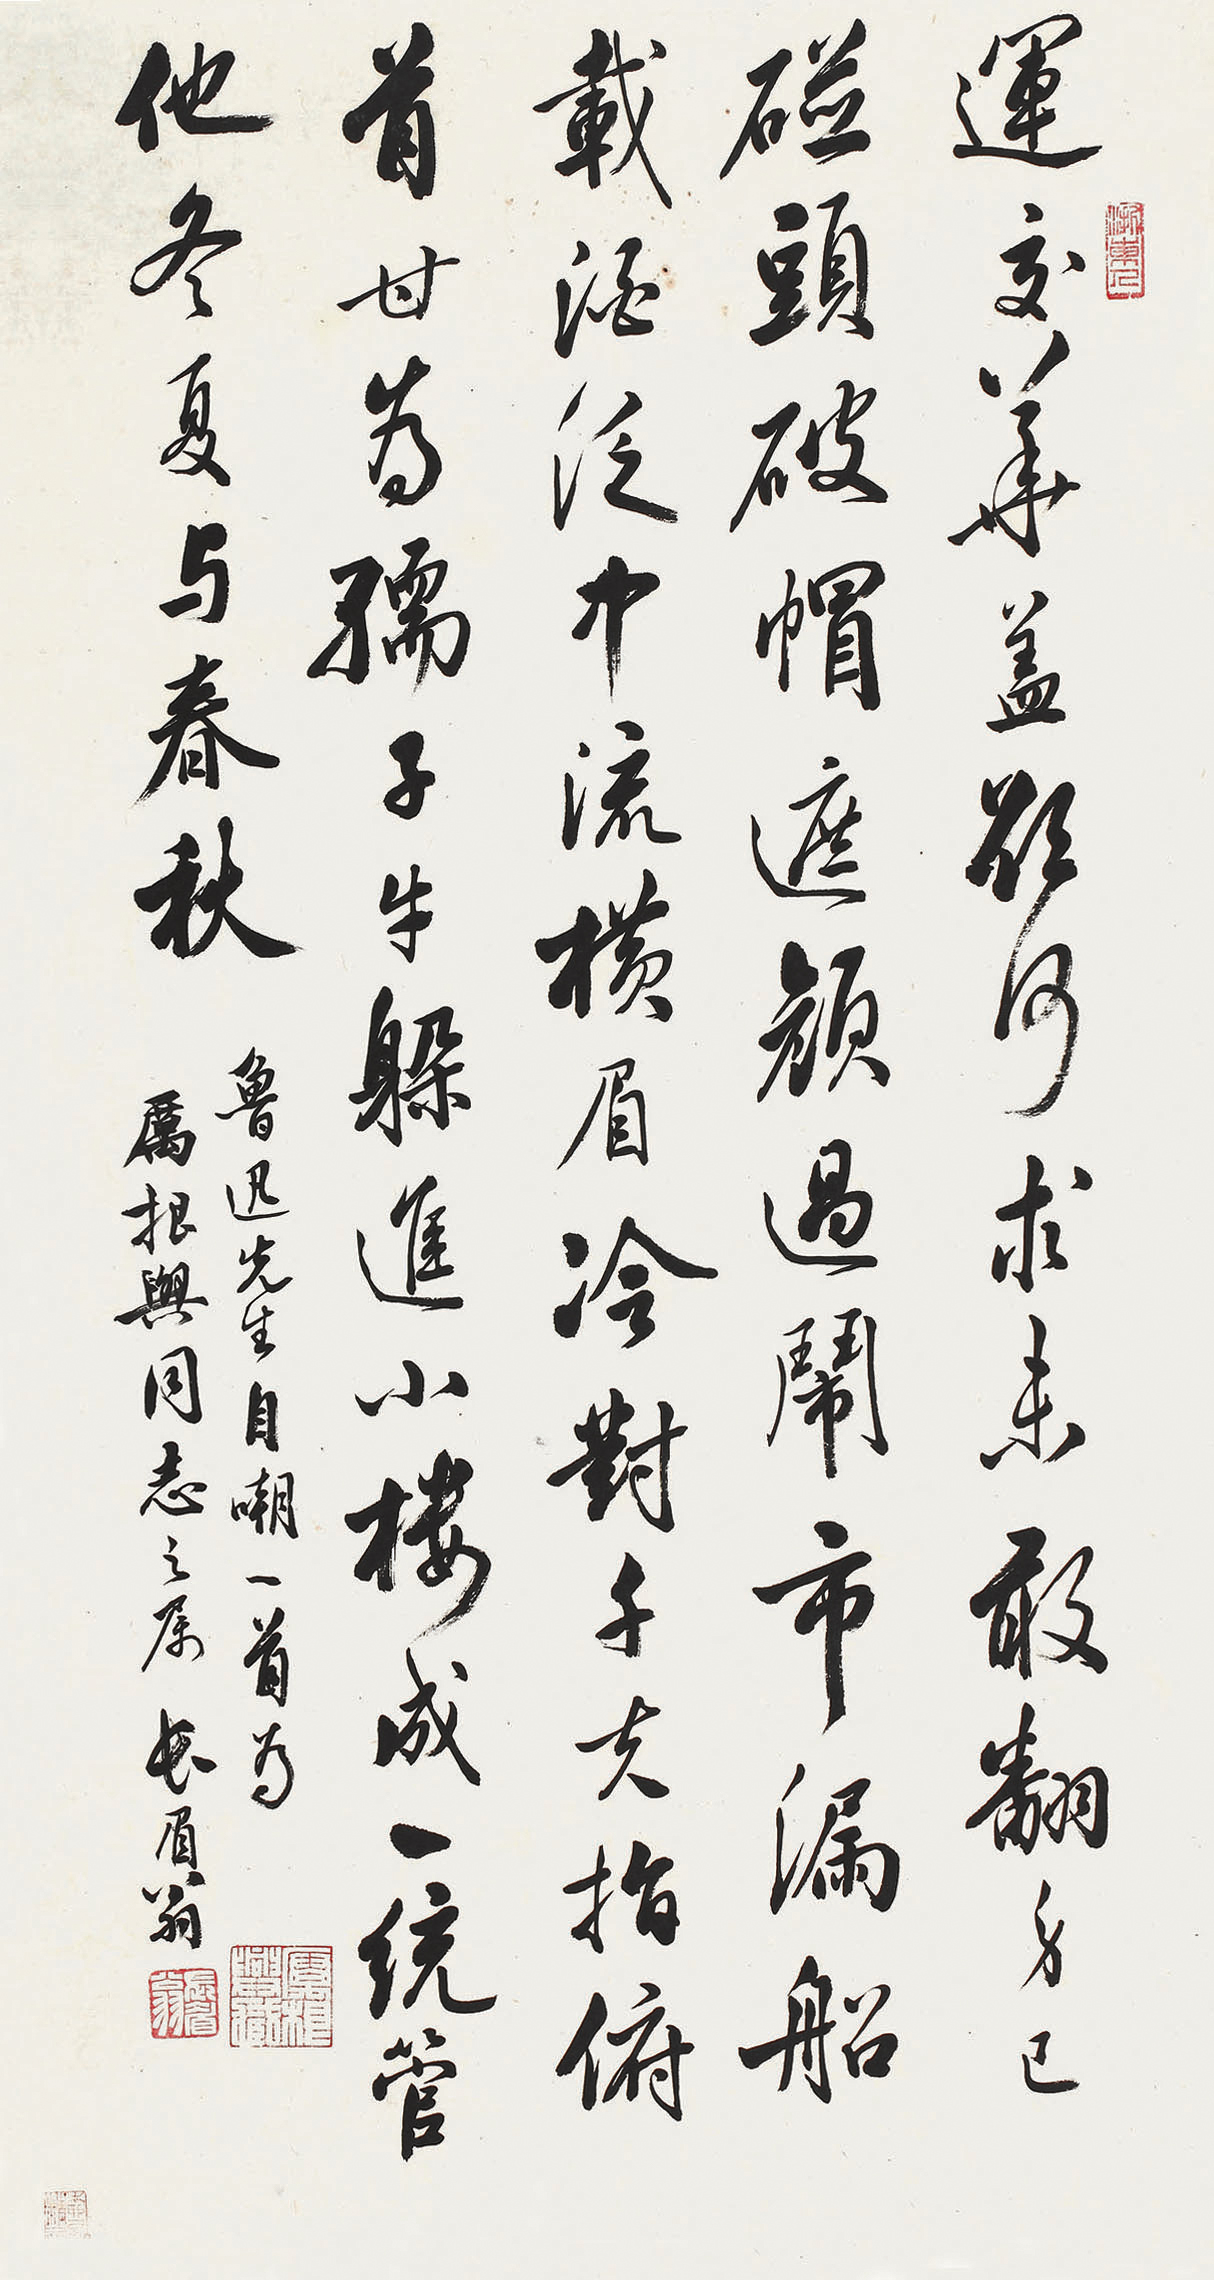 運交華蓋欲何求未敢翻身已
碰頭破帽遮顔過鬧市漏船
載酒泛中流横眉冷對千夫指俯
首甘為孺子牛躲進小楼成一统管
他冬夏与春秋
魯迅先生自嘲一首为
厲根興同志之属 長眉翁